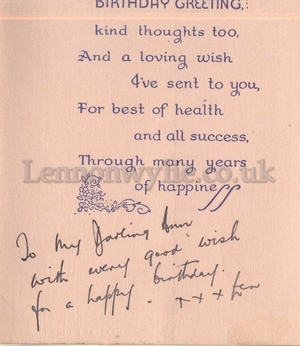 BIRTHDAY GREETING,
kind thoughts too,
And a loving wish
I've sent to you,
For best of health
and all success,
Through many years
Lennonwylie.co.uk
of happiness
To My Darling Ann
with every good wish
for a happy birthday.
x x x Len